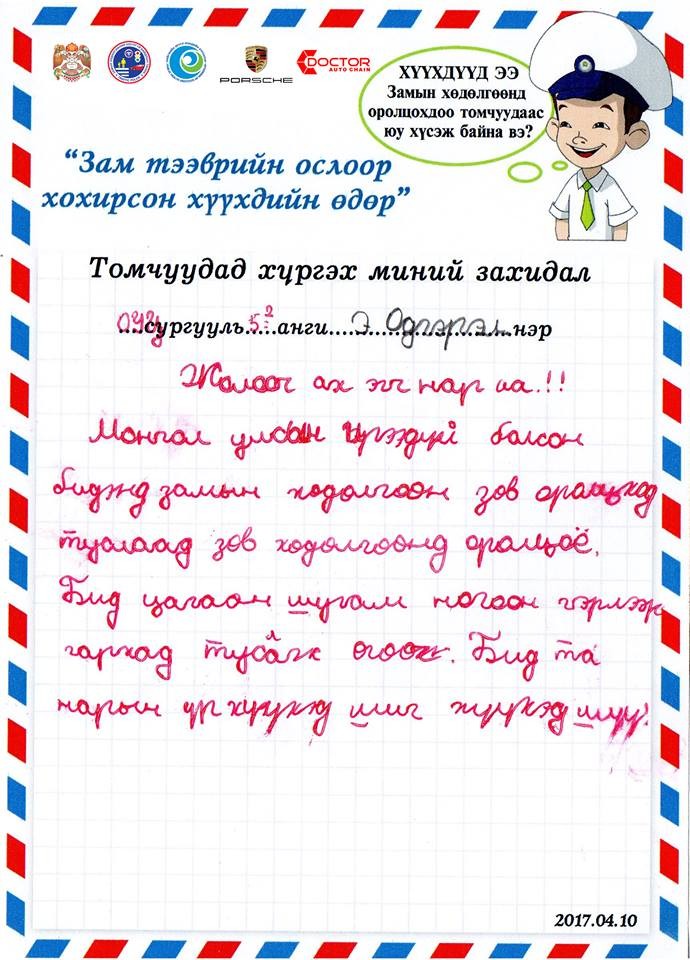 PORSCHE
DOCTOR
AUTO CHAIN
ХҮҮХДҮҮД ЭЭ
Замын хөдөлгөөнд
оролцохдоо томчуудаас
юу хүсэж байна вэ?
“Зам тээврийн ослоор
хохирсон хүүхдийн өдөр”
Томчуудад хүргэх миний захидал
....сургууль 5-2 анги.... Э Одгэрэл нэр
Жолооч ах эгч нар аа.!!
Монгол улсын иргэдүүй болсон
биднд замын ходолгоон зов оралцход
туслаад зов ходолгоонд оралцоё.
Бид цагаан шугам ногоон гэрлээр
гархад тусалж огоон. Бид та
нарын үр хүүхэд шиг хүүхэд шүү.
2017.04.10